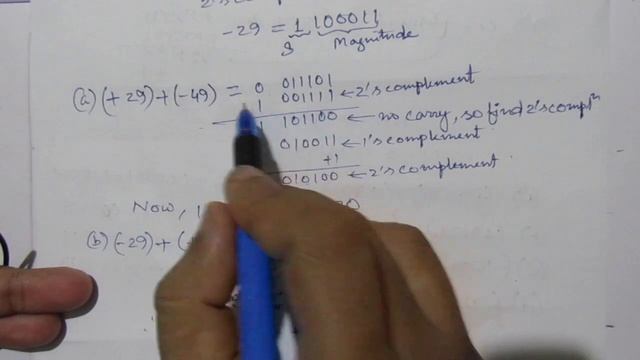 -29 = 1 100011
S Magnitude
(a) (+29)+(-49) = 0 011101
1 001111 ← 2's complement
1 101100 ← no carry, so find 2's complⁿ
010011 ← 1's complement
+1
010100 ← 2's complement
Now,
(b) (-29)+(